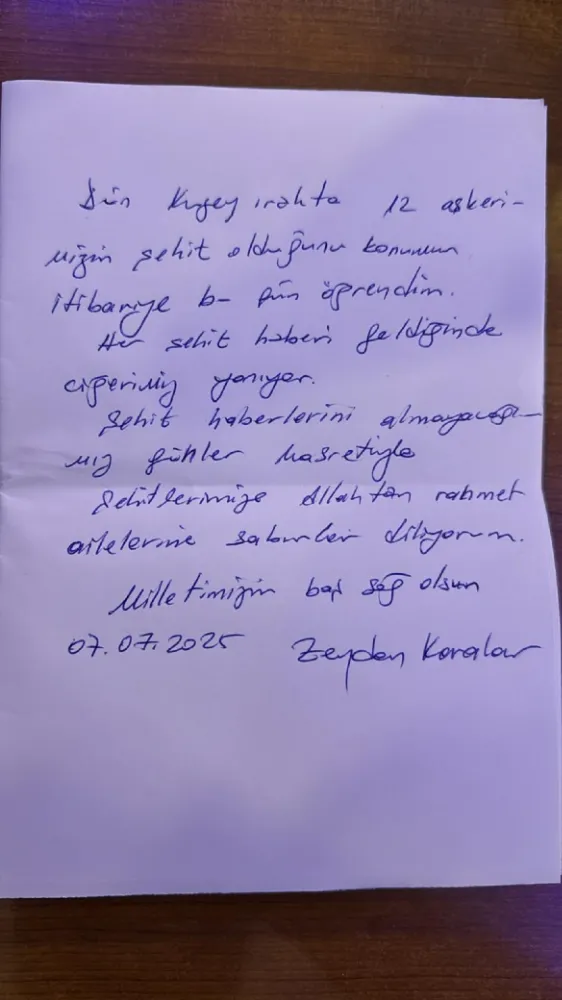 Dün Kuzey ırakta 12 askeri-
mizin şehit olduğunu konumum
itibariye bu gün öğrendim.
Her şehit haberi geldiğinde
ciğerimiz yanıyor.
Şehit haberlerini almayacağı-
mız günler hasretiyle
Şehitlerimize Allahtan rahmet
ailelerine sabırlar diliyorum.
Milletimizin başı sağ olsun
07.07.2025 Zeydan Karalar